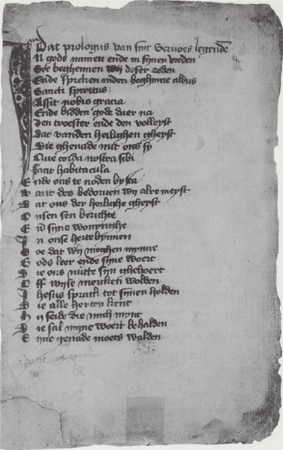 Dat prologus van sint Servoes legende
N gods namen ende in sijnen vreden
Soe beghennen wij deser reden
Ende spreken inden beghinne aldus
Sancti spiritus
Assit nobis gracia
Ende bidden gode daer na
Den troester ende den volleyst
Dat vanden heilighen gheyst
Die ghenade mit ons sy
Que corda nostra sibi
Faat habitacula
Ende ons te noden by sta
want des bedorven wij alre meyst
Dat ons der heilighe gheyst
Onsen sen
Ende sijne
In onse herte
Soe dat wij moghen
Gods leer ende sijne woert
Die ons nutte sijn ghehoert
Off wijse mercken wolden
Ihesus sprack tot sijnen holden
Die alle herten kent
Hij seide die mich mynt
Die sal mijne woert behalden
Ende mijne genade moets walden